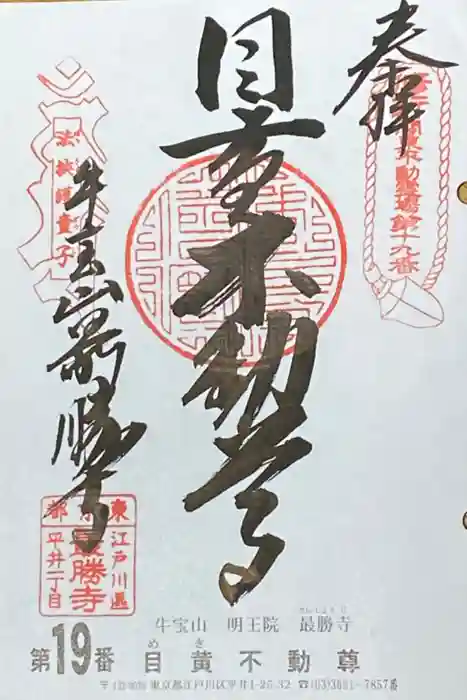 奉拝
不動霊場第十九番
目黄不動尊
法挟護童子
牛宝山最勝寺
東京都
江戸川區
最勝寺
平井一丁目
さいしょうじ
牛宝山 明王院 最勝寺
め き
第19番 目黄不動尊
東京都江戸川区平井1-25-32 ☎(03)3681-7857番